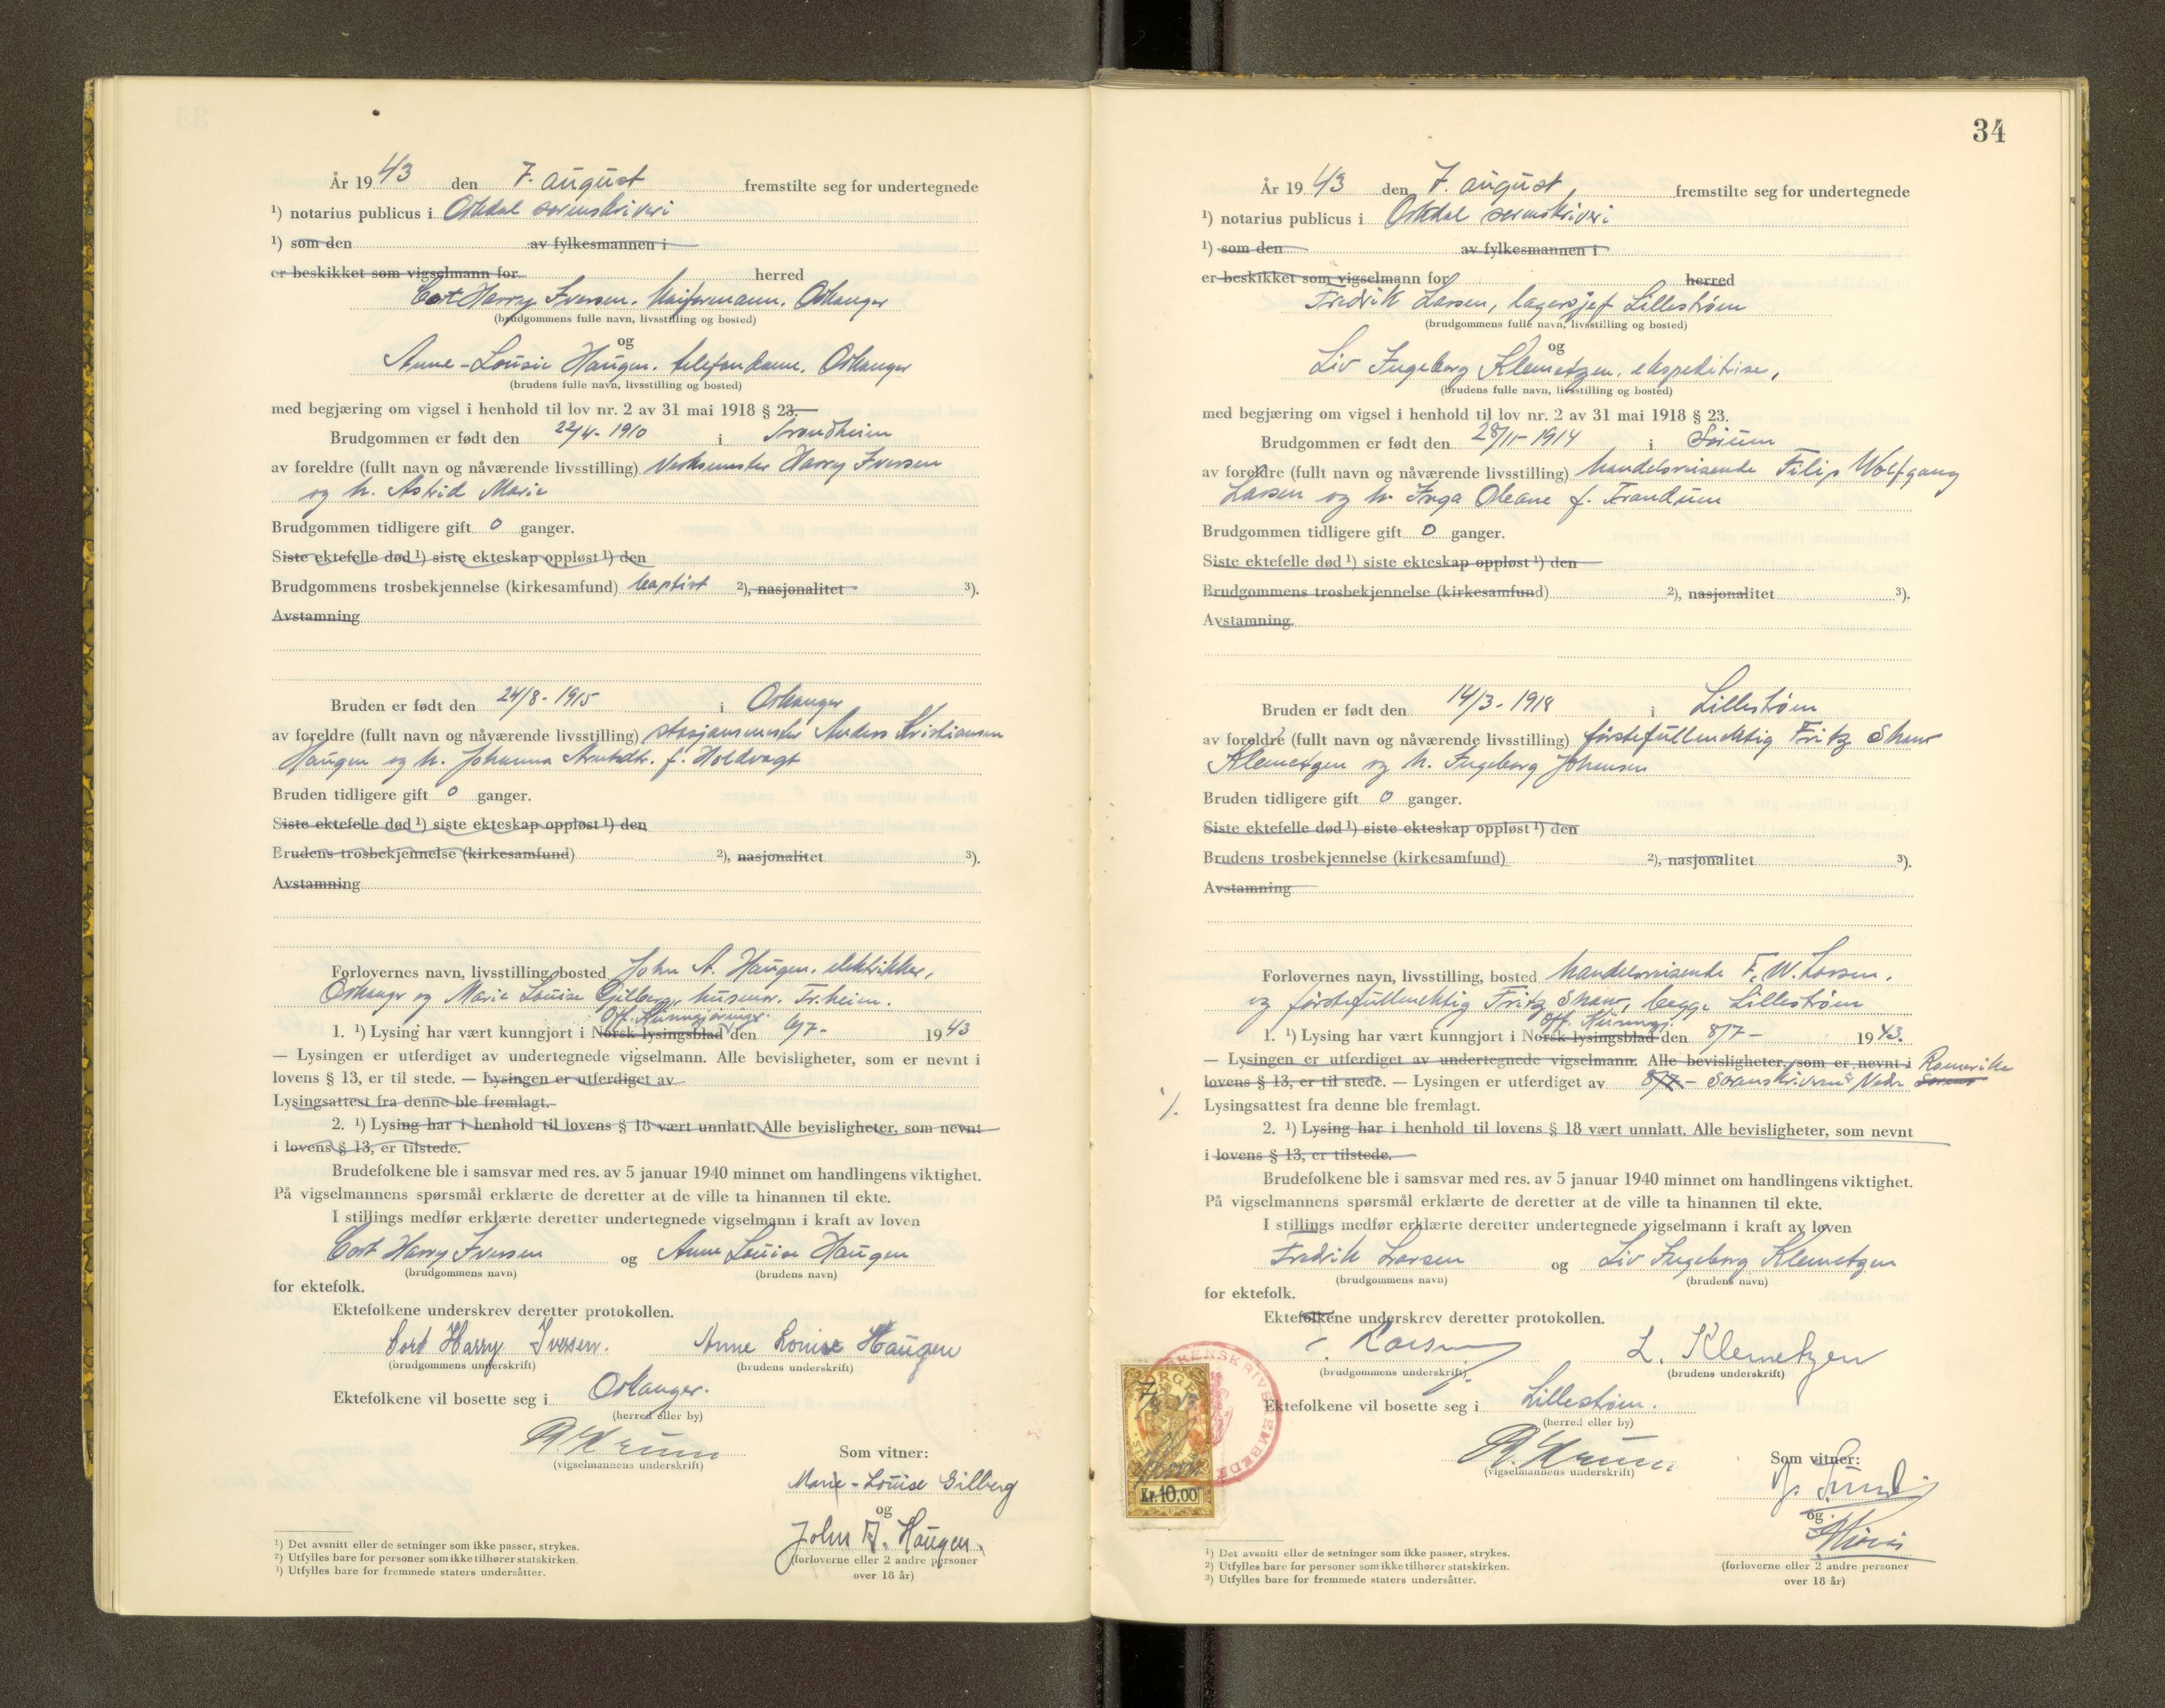 År 1943 den 7. august fremstilte seg for undertegnede
¹) notarius publicus i Orkdal sorenskriveri
¹) som den av fylkesmannen i
er beskikket som vigselmann for herred
Cort Harry Iversen. Orkanger
(brudgommens fulle navn, livsstilling og bosted)
og
Anne-Lousie Haugen. telefondame. Orkanger
(brudens fulle navn, livsstilling og bosted)
med begjæring om vigsel i henhold til lov nr. 2 av 31 mai 1918 § 23.
Brudgommen er født den 22/4- 1910 i Trondheim
av foreldre (fullt navn og nåværende livsstilling) Verksmester Harry Iversen
og h. Astrid Marie
Brudgommen tidligere gift 0 ganger.
Siste ektefelle død ¹) siste ekteskap oppløst ¹) den
Brudgommens trosbekjennelse (kirkesamfund) baptist ²), nasjonalitet ³).
Avstamning
Bruden er født den 24/8- 1915 i Orkanger
av foreldre (fullt navn og nåværende livsstilling) stasjonsmester Anders Kristiansen
Haugen og h. Johanna f. Holdvagt
Bruden tidligere gift 0 ganger.
Siste ektefelle død ¹) siste ekteskap oppløst ¹) den
Brudens trosbekjennelse (kirkesamfund) ²), nasjonalitet ³).
Avstamning
Forlovernes navn, livsstilling, bosted John A. Haugen. elektriker,
Orkangr og Marie Louise Gilberg, husmor. Tr.heim.
Off. Kunngjøringr.
1. ¹) Lysing har vært kunngjort i Norsk lysingsblad den 6/7- 1943
— Lysingen er utferdiget av undertegnede vigselmann. Alle bevisligheter, som er nevnt i
lovens § 13, er til stede. — Lysingen er utferdiget av
Lysingsattest fra denne ble fremlagt.
2. ¹) Lysing har i henhold til lovens § 18 vært unnlatt. Alle bevisligheter, som nevnt
i lovens § 13, er tilstede.
Brudefolkene ble i samsvar med res. av 5 januar 1940 minnet om handlingens viktighet.
På vigselmannens spørsmål erklærte de deretter at de ville ta hinannen til ekte.
I stillings medfør erklærte deretter undertegnede vigselmann i kraft av loven
Cort Harry Iversen og Anne Louise Haugen
(brudgommens navn) (brudens navn)
for ektefolk.
Ektefolkene underskrev deretter protokollen.
Cort Harry Iversen. Anne Louise Haugen
(brudgommens underskrift) (brudens underskrift)
Ektefolkene vil bosette seg i Orkanger.
(herred eller by)
(vigselmannens underskrift)
Som vitner:
Marie-Louise Gilberg
og
John A. Haugen.
(forloverne eller 2 andre personer
over 18 år)
¹) Det avsnitt eller de setninger som ikke passer, strykes.
²) Utfylles bare for personer som ikke tilhører statskirken.
³) Utfylles bare for fremmede staters undersåtter.
34
År 1943 den 7. august, fremstilte seg for undertegnede
¹) notarius publicus i Orkdal sorenskriveri
¹) som den av fylkesmannen i
er beskikket som vigselmann for herred
Fredrik Larsen, lagersjef Lillestrøm
(brudgommens fulle navn, livsstilling og bosted)
og
Liv Ingeborg Klemetzen. ekspeditrise,
(brudens fulle navn, livsstilling og bosted)
med begjæring om vigsel i henhold til lov nr. 2 av 31 mai 1918 § 23.
Brudgommen er født den 28/11- 1914 i Sørum
av foreldre (fullt navn og nåværende livsstilling) handelsreisende Filip Wolfgang
Larsen og h. Inga Oleane f. Frandum
Brudgommen tidligere gift 0 ganger.
Siste ektefelle død ¹) siste ekteskap oppløst ¹) den
Brudgommens trosbekjennelse (kirkesamfund) ²), nasjonalitet ³).
Avstamning
Bruden er født den 14/3- 1918 i Lillestrøm
av foreldre (fullt navn og nåværende livsstilling) førstefullmektig Fritz Shaw
Klemetzen og h. Ingeborg Johansen
Bruden tidligere gift 0 ganger.
Siste ektefelle død ¹) siste ekteskap oppløst ¹) den
Brudens trosbekjennelse (kirkesamfund) ²), nasjonalitet ³).
Avstamning
Forlovernes navn, livsstilling, bosted handelsreisende F. W. Larsen,
og førstefullmektig Fritz Shaw, begge Lillestrøm
Off. Kunngj.
1. ¹) Lysing har vært kunngjort i Norsk lysingsblad den 8/7- 1943.
— Lysingen er utferdiget av undertegnede vigselmann. Alle bevisligheter, som er nevnt i Romerike
lovens § 13, er til stede. — Lysingen er utferdiget av 8/7 - Sorenskriveren i Nedr.
Lysingsattest fra denne ble fremlagt.
2. ¹) Lysing har i henhold til lovens § 18 vært unnlatt. Alle bevisligheter, som nevnt
i lovens § 13, er tilstede.
Brudefolkene ble i samsvar med res. av 5 januar 1940 minnet om handlingens viktighet.
På vigselmannens spørsmål erklærte de deretter at de ville ta hinannen til ekte.
I stillings medfør erklærte deretter undertegnede vigselmann i kraft av loven
Fredrik Larsen og Liv Ingeborg Klemetzen
(brudgommens navn) (brudens navn)
for ektefolk.
Ektefolkene underskrev deretter protokollen.
Larsen L. Klemetzen
(brudgommens underskrift) (brudens underskrift)
Ektefolkene vil bosette seg i Lillestrøm.
(herred eller by)
Kr. 10,00
(vigselmannens underskrift)
Som vitner:
og
(forloverne eller 2 andre personer
over 18 år)
¹) Det avsnitt eller de setninger som ikke passer, strykes.
²) Utfylles bare for personer som ikke tilhører statskirken.
³) Utfylles bare for fremmede staters undersåtter.